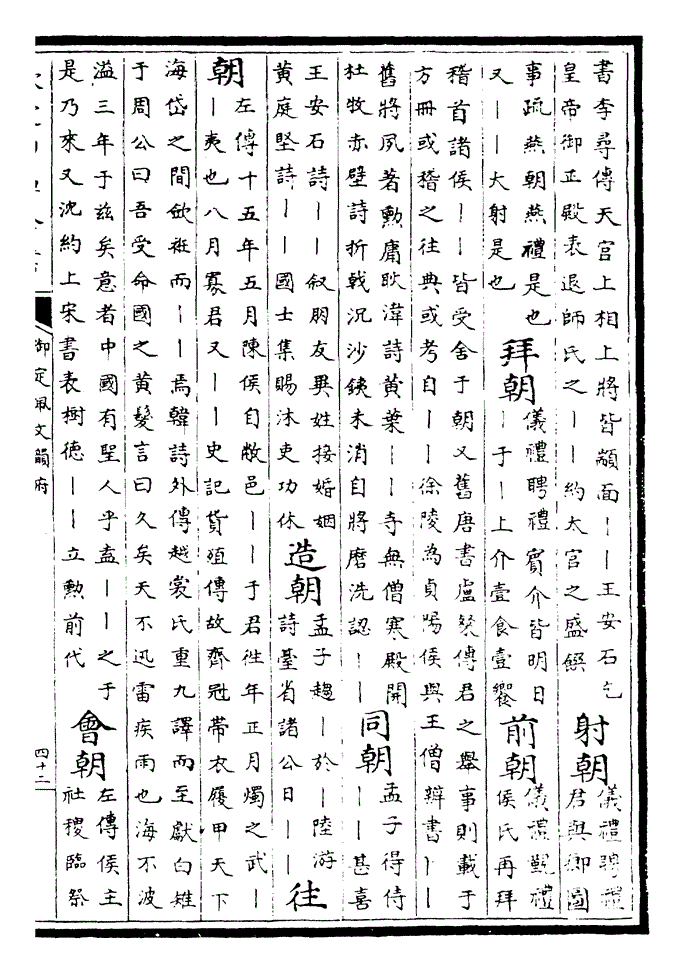 書李尋傳天官上相上將皆顓面｜｜王安石乞
皇帝御正殿表退師氏之｜｜約太官之盛饌
射朝
儀禮聘禮
君與卿圖
事疏燕朝燕禮是也
又｜｜大射是也
拜朝
儀禮聘禮賓介皆明日
｜于｜上介壹食壹饗
前朝
儀禮覲禮
侯氏再拜
稽首諸侯｜｜皆受舍于朝又舊唐書盧粲傳君之舉事則載于
方冊或稽之往典或考自｜｜徐陵為貞陽侯與王僧辯書｜｜
舊將夙著勳庸耿湋詩黃葉｜｜寺無僧寒殿開
杜牧赤壁詩折戟沉沙鐵未消自將磨洗認｜｜
同朝
孟子得侍
｜｜甚喜
王安石詩｜｜叙朋友異姓接婚姻
黃庭堅詩｜｜國士集賜沐吏功休
造朝
孟子趨｜於｜陸游
詩臺省諸公日｜｜
往
朝
左傳十五年五月陳侯自敝邑｜｜于君徃年正月燭之武｜
｜夷也八月寡君又｜｜史記貨殖傳故齊冠帶衣履甲天下
海岱之間歛袵而｜｜焉韓詩外傳越裳氏重九譯而至獻白雉
于周公曰吾受命國之黃髮言曰久矣天不迅雷疾雨也海不波
溢三年于兹矣意者中國有聖人乎盍｜｜之于
是乃來又沈約上宋書表樹德｜｜立勳前代
會朝
左傳侯主
社稷臨祭
御定佩文韻府
四十二